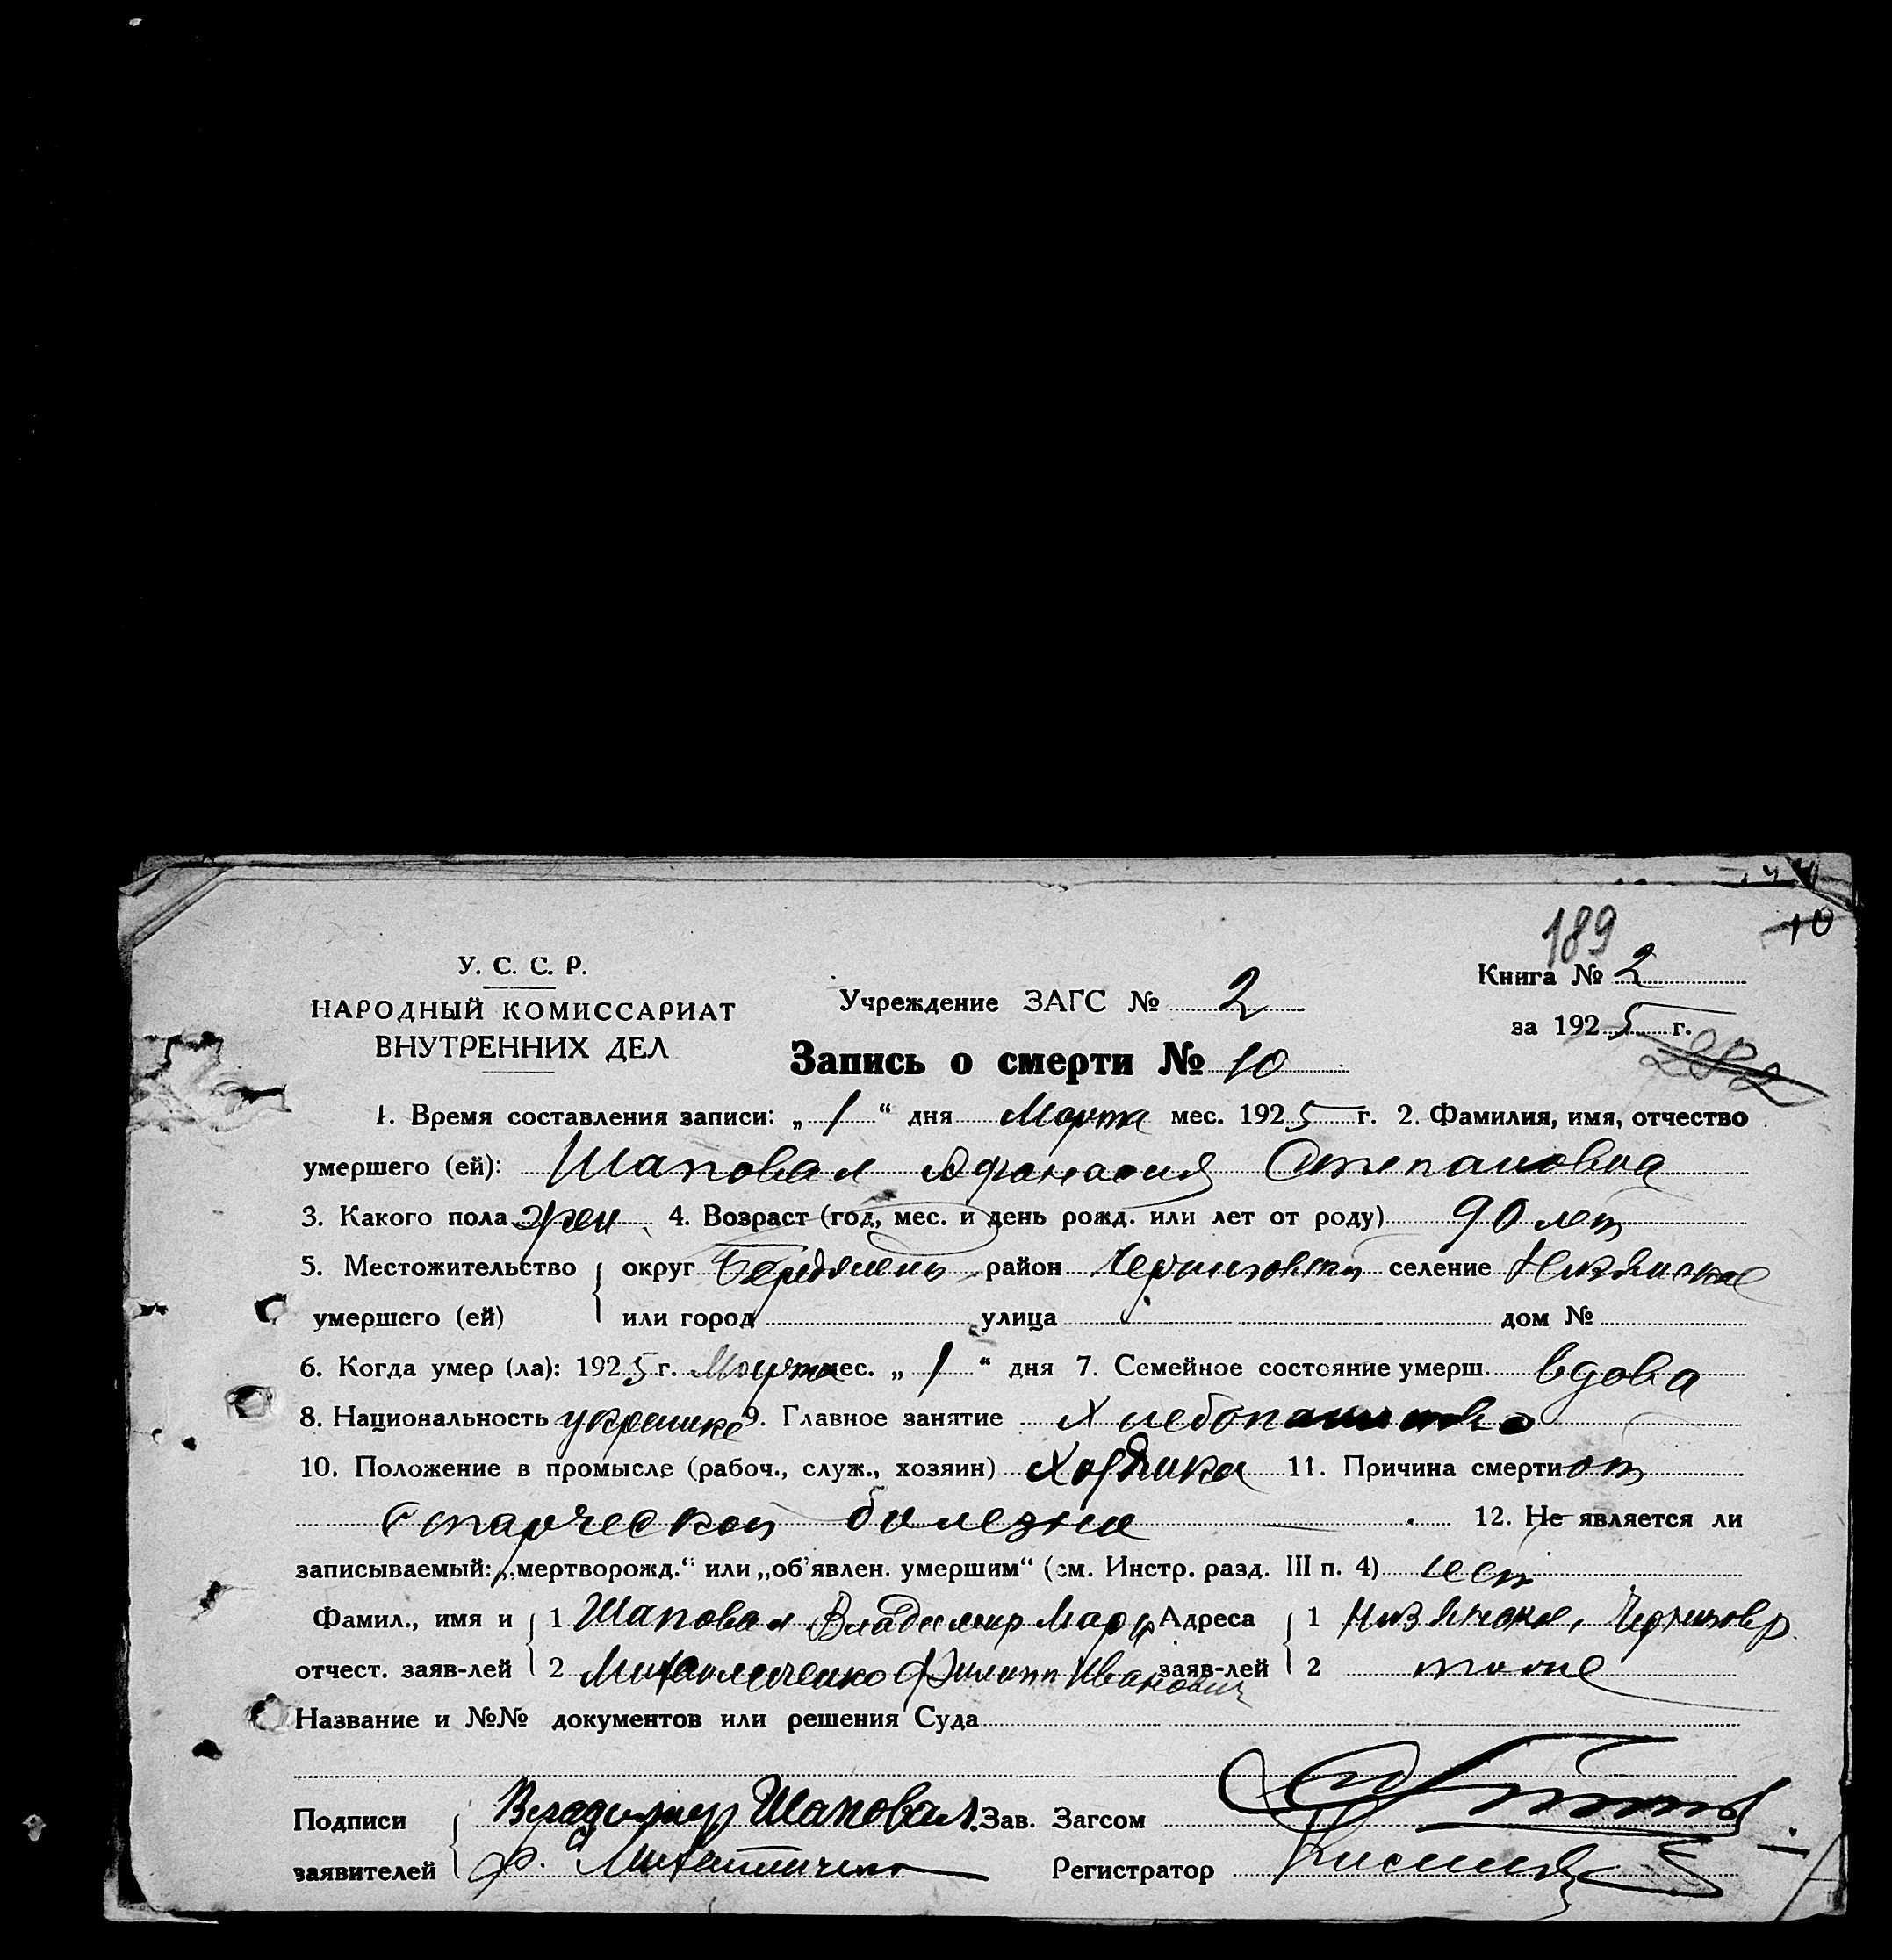 189
10
У. С. С. Р.
НАРОДНЫЙ КОМИССАРИАТ
ВНУТРЕННИХ ДЕЛ
Учреждение ЗАГС № 2
Книга № 2
за 1925 г.
282
Запись о смерти № 10
1. Время составления записи: „ 1 “ дня Марта мес. 1925 г. 2. Фамилия, имя, отчество
умершего (ей): Шаповал Афанасия Степановна
3. Какого пола жен 4. Возраст (год, мес. и день рожд. или лет от роду) 90 лет
5. Местожительство умершего (ей) округ район селение
или город улица дом №
6. Когда умер (ла): 1925 г. Марта мес. „ 1 “ дня 7. Семейное состояние умерш. вдова
8. Национальность 9. Главное занятие
10. Положение в промысле (рабоч., служ., хозяин) Хозяйка 11. Причина смерти от
старческой болезни 12. Не является ли
записываемый: „мертворожд.“ или „об'явлен. умершим“ (см. Инстр. разд. III п. 4) нет
Фамил., имя и отчест. заяв-лей 1 Шаповал Владимир Адреса заяв-лей 1
2 Михайличенко Филипп Иванович 2 тоже
Название и №№ документов или решения Суда
Подписи заявителей Владимир Шаповал. Зав. Загсом
Ф. Михайличенко Регистратор